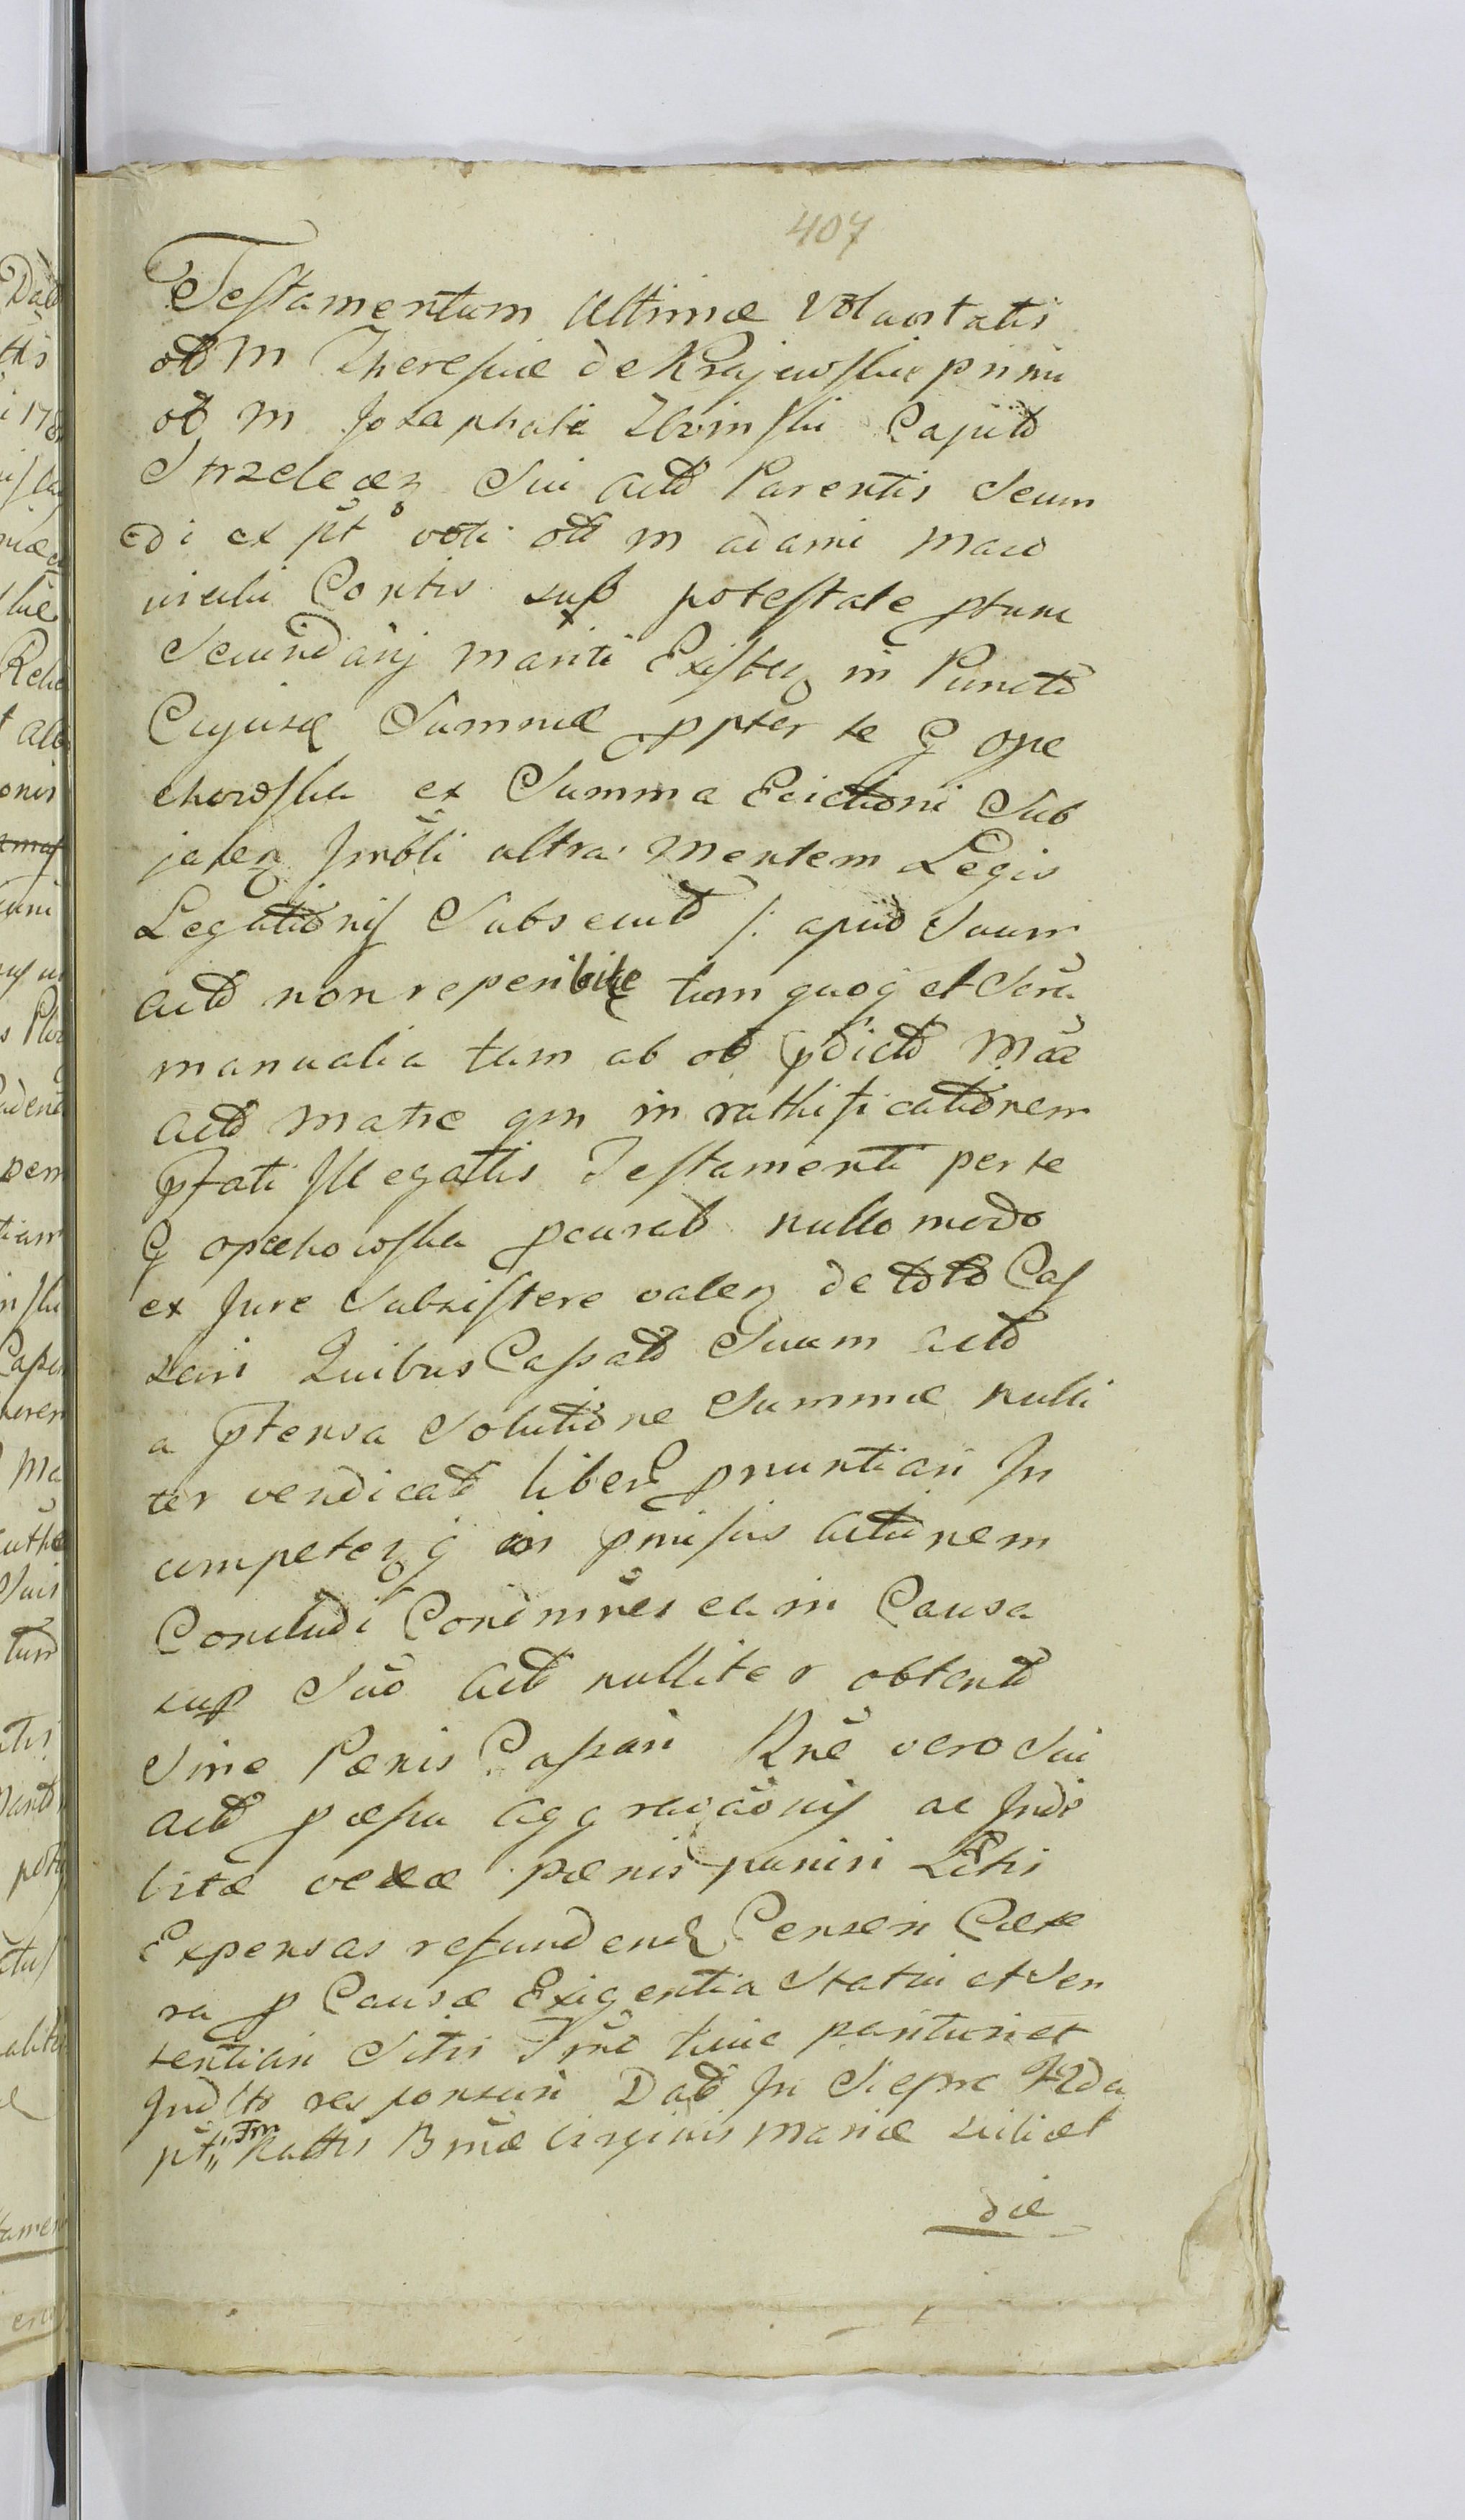 407
Testamentum Ultimæ Voluntatis
ob M Theresiæ de Krajewskie primi
ob M Jozaphati Zboinski Capit
Strzelecen Sui act Parentis Secun
di ex pt voti ob M Adami
Contis sub potestate ptunc
Secundarij Mariti Existen in Puncto
Cujusd Summæ ppter te G Ope
chowska ex Summa Evictioni Sub
jacen Imobli ultra Mentem Legis
Legationis Subsecut /: apud Suum
act non reperibile tum quoq et Scru
manualia tam ab ob pdict Mæ
act Matre qm in rathificationem
pfati Illegattis Testamenti per te
G opechowska pcurat nullo modo
ex Jure Subsistere valen de toto Cas
sari Quibus Cassat Suum act
a ptensa Solutione Summæ nulli
ter vendicat liber pnuntiari In
competen q in pmisis Actionem
Concludi Condmnes ea in Causa
sup Suo Act nulliter obtent
Sine Pænis Cassari Rne vero Sui
act p æpu aggravaonis ac Inde
bitæ vexæ pænis puniri Litis
Expensas refundend Censeri Cæte
ra p Causæ Exigentia Statui et Sen
tentiari Sitis Tme tunc parituri et
Judtr responsuri Dat In Sierpc Frda
pt Fm Nattis Bmæ Virginis Mariæ scilicet
die